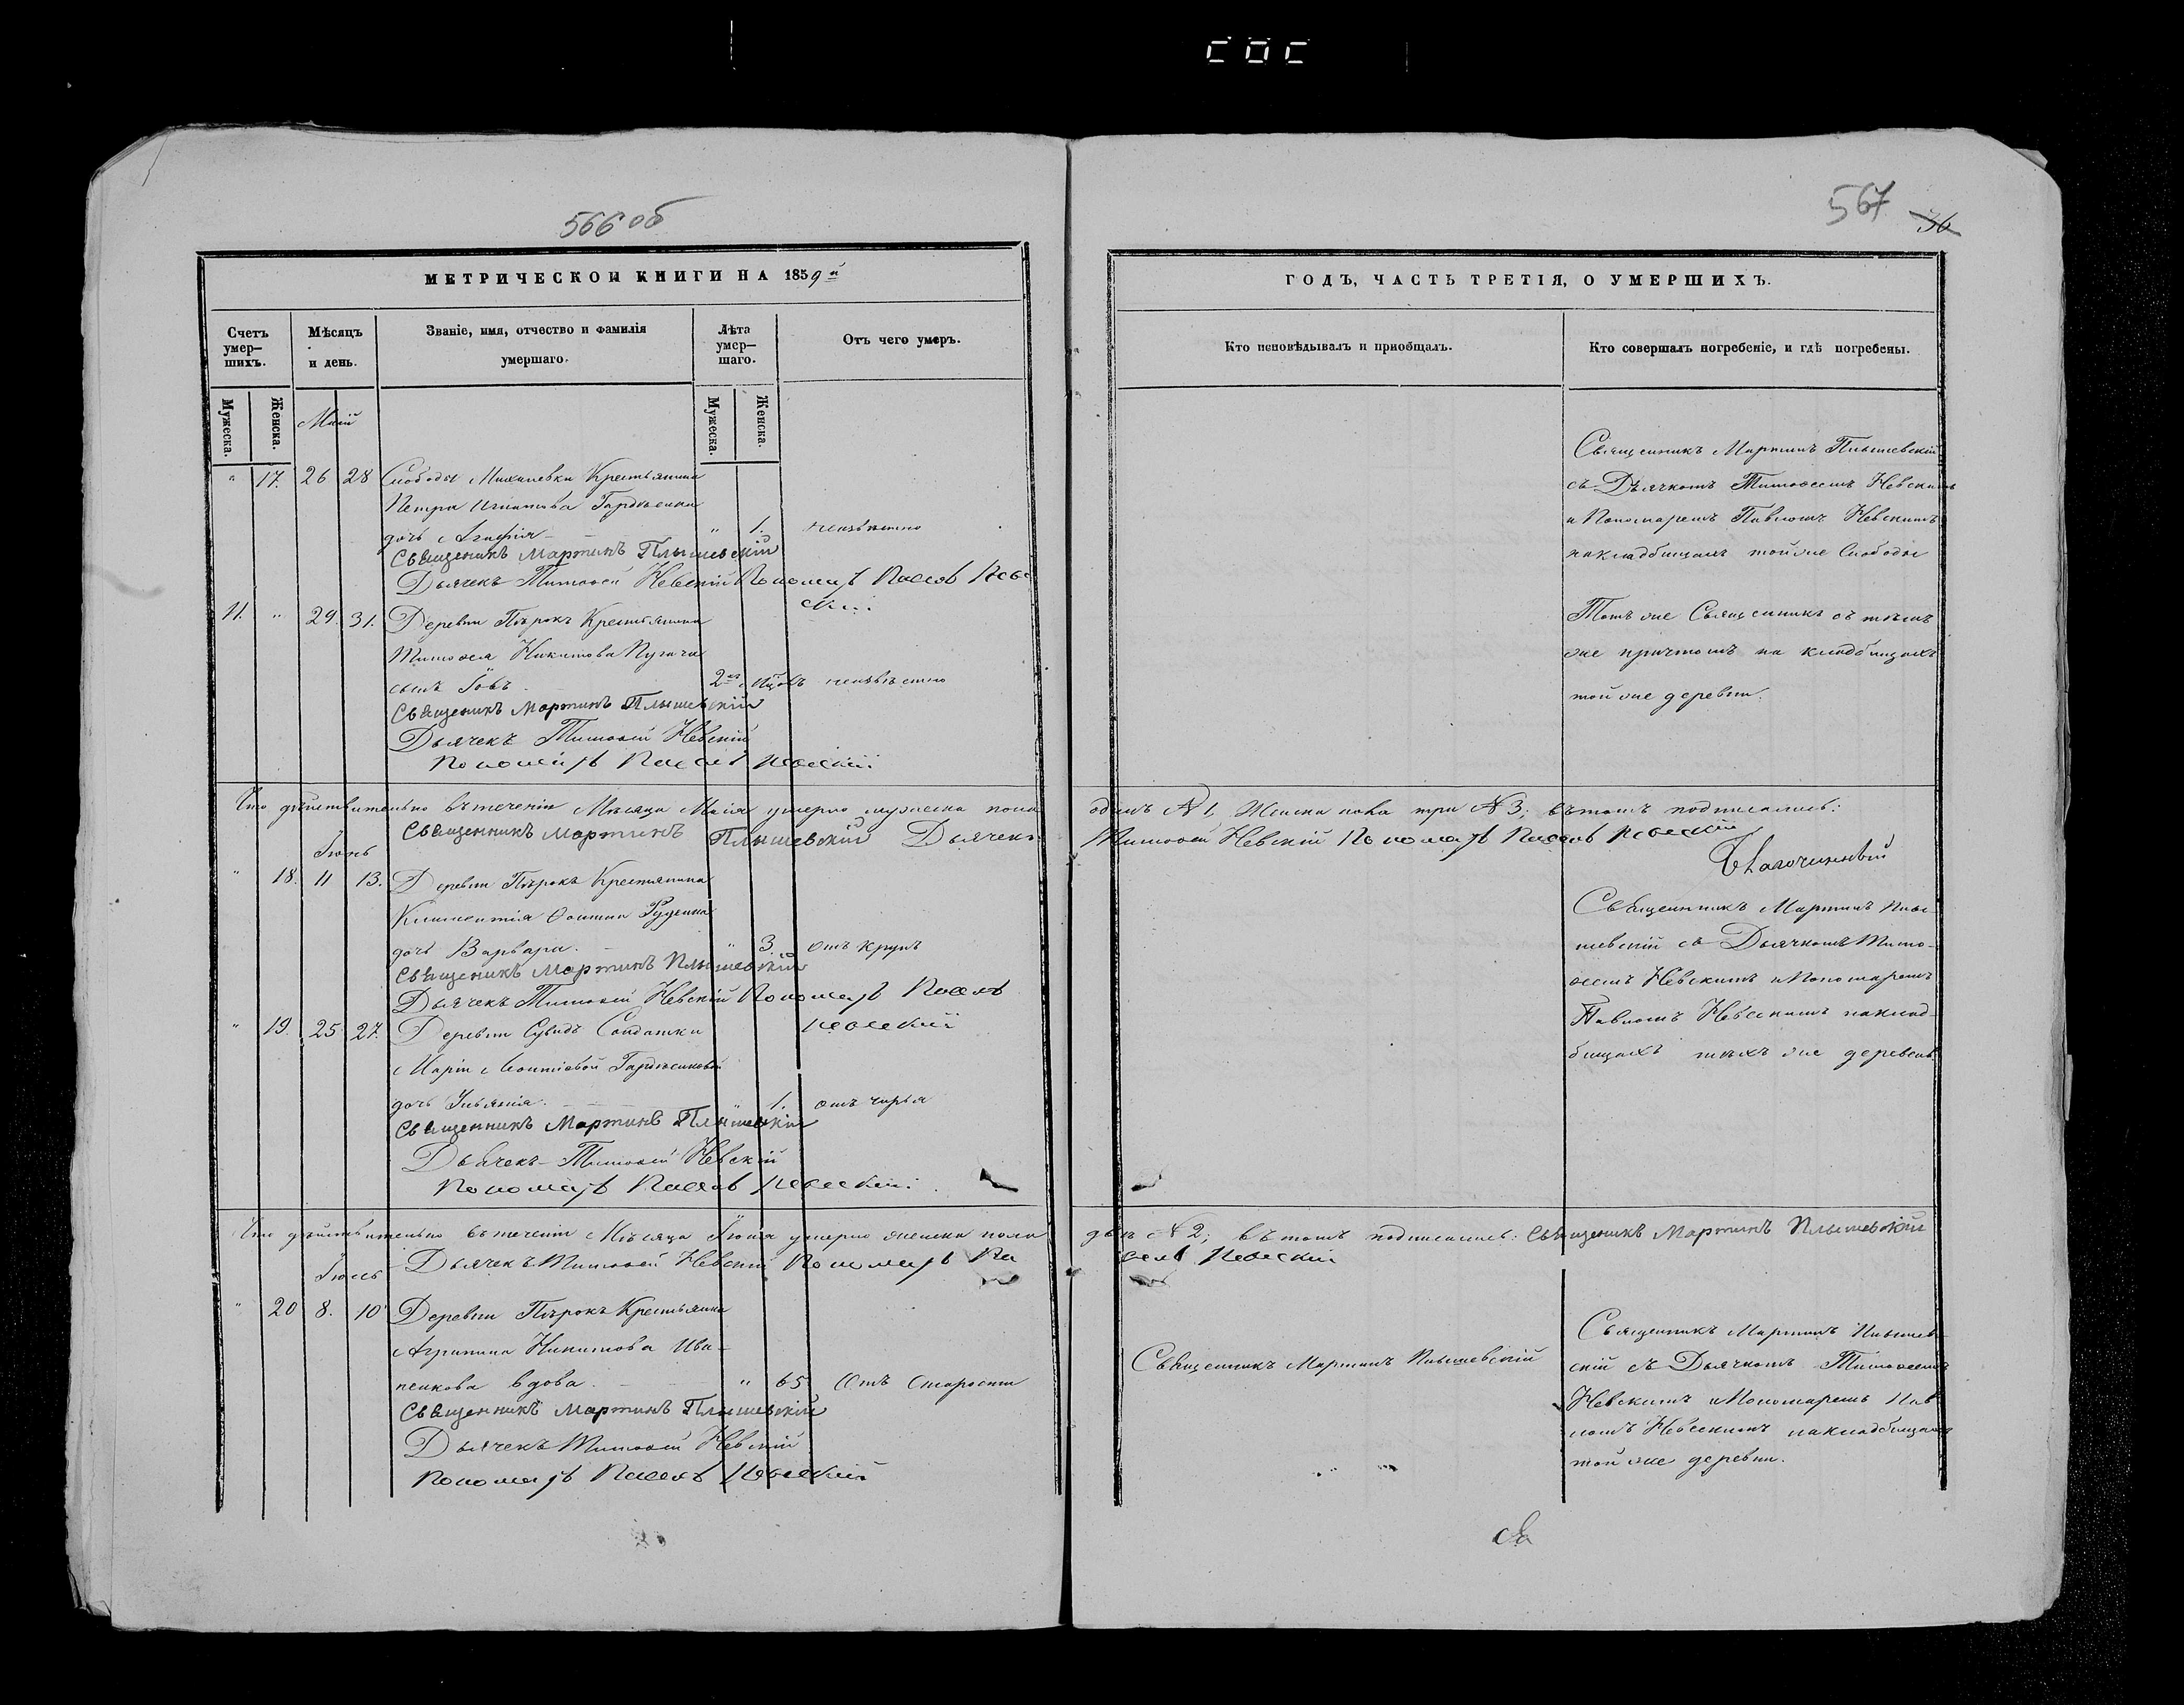 566 об
МЕТРИЧЕСКОЙ КНИГИ НА 1859й
Счетъ умер-шихъ.
Мѣсяцъ и день.
Званіе, имя, отчество и фамилія умершаго.
Лѣта умер-шаго.
Отъ чего умеръ.
Мужеска.
Женска.
Мужеска.
Женска.
Маій
" 17. 26 28 Слободы Михалевки Крестьянина
Петра Игнатова
дочь Агафія " 1. неизвѣстно
Священикъ Мартинъ Плышевскій
Дьячекъ Тимофей Невскій Пономарь Павелъ Нев
скій
11. " 29. 31. Деревни Пѣрокъ Крестьянина
Тимофея Никитова Пугача
сынъ Іовъ. неизвѣстно
Священикъ Мартинъ Плышевскій
Дьячекъ Тимофей Невскій
Пономарь Павелъ Невскій
Что дѣйствительно въ теченіи Мѣсяца Маія умерло мужеска пола
Священникъ Мартинъ Плышевскій Дьячекъ
Іюнь
" 18. 11 13. Деревни Пѣрокъ Крестьянина
Климентія Фомина Руденка
дочь Варвара. " 3 отъ крупъ
Священикъ Мартинъ Плышевскій
Дьячекъ Тимофей Невскій Пономарь Павелъ
Невскій
" 19. 25 27. Деревни Солдатки
Маріи
дочь Ульянія. " 1. отъ чирья
Священникъ Мартинъ Плышевскій
Дьячекъ Тимофей Невскій
Пономарь Павелъ Невскій
Что дѣйствительно въ теченіи Мѣсяца Іюня умерло женска пола
Дьячекъ Тимофей Невскій Пономарь Па
Іюль
" 20 8. 10 Деревни Пѣрокъ Крестьянка
Агрипина Никитова Ива-
ненкова вдова. " 65 Отъ Старости
Священникъ Мартинъ Плышевскій
Дьячекъ Тимофей Невскій
Пономарь Павелъ Невскій
567 36
ГОДЪ, ЧАСТЬ ТРЕТІЯ, О УМЕРШИХЪ.
Кто исповѣдывалъ и пріобщалъ.
Кто совершалъ погребеніе, и гдѣ погребены.
Священникъ Мартинъ Плышевскій
съ Дьячкомъ Тимофеемъ Невскимъ
и Пономаремъ Павломъ Невскимъ
на кладбищахъ той же Слободы
Тотъ же Священникъ съ тѣмъ
же причтомъ на кладбищахъ
той же деревни.
одинъ № 1, Женска пола три № 3; въ томъ подписались:
Тимофей Невскій Пономарь Павелъ Невскій
Благочинный
Священникъ Мартинъ Плы-
шевскій съ Дьячкомъ Тимо-
феемъ Невскимъ и Пономаремъ
Павломъ Невскимъ на клад-
бищахъ тѣхъ же деревень
двѣ № 2; въ томъ подписались: Священикъ Мартинъ Плышевскій
велъ Невскій
Священникъ Мартинъ Плышевскій
Священникъ Мартинъ Плышев-
скій съ Дьячкомъ Тимофеемъ
Невскимъ и Пономаремъ Пав-
ломъ Невскимъ на кладбищахъ
той же деревни.